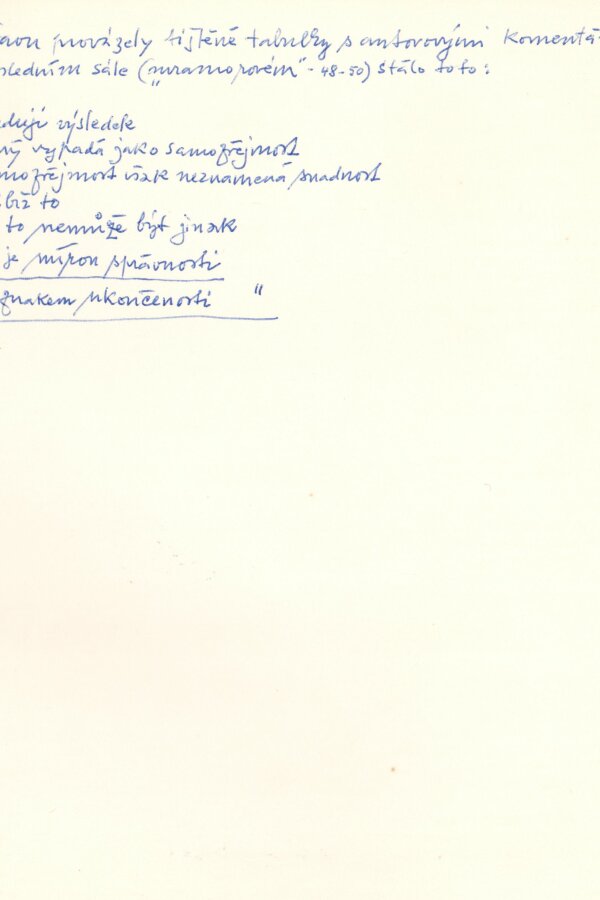 provázely tištěné tabulky s autorovými komentá
sledním sále ("mramorovém" - 48-50) stálo toto:
výsledek
ný vypadá jako samozřejmost
mozřejmost však neznamená snadnost
býž to
to nemůže být jinak
je mírou správnosti
znakem ukončenosti "